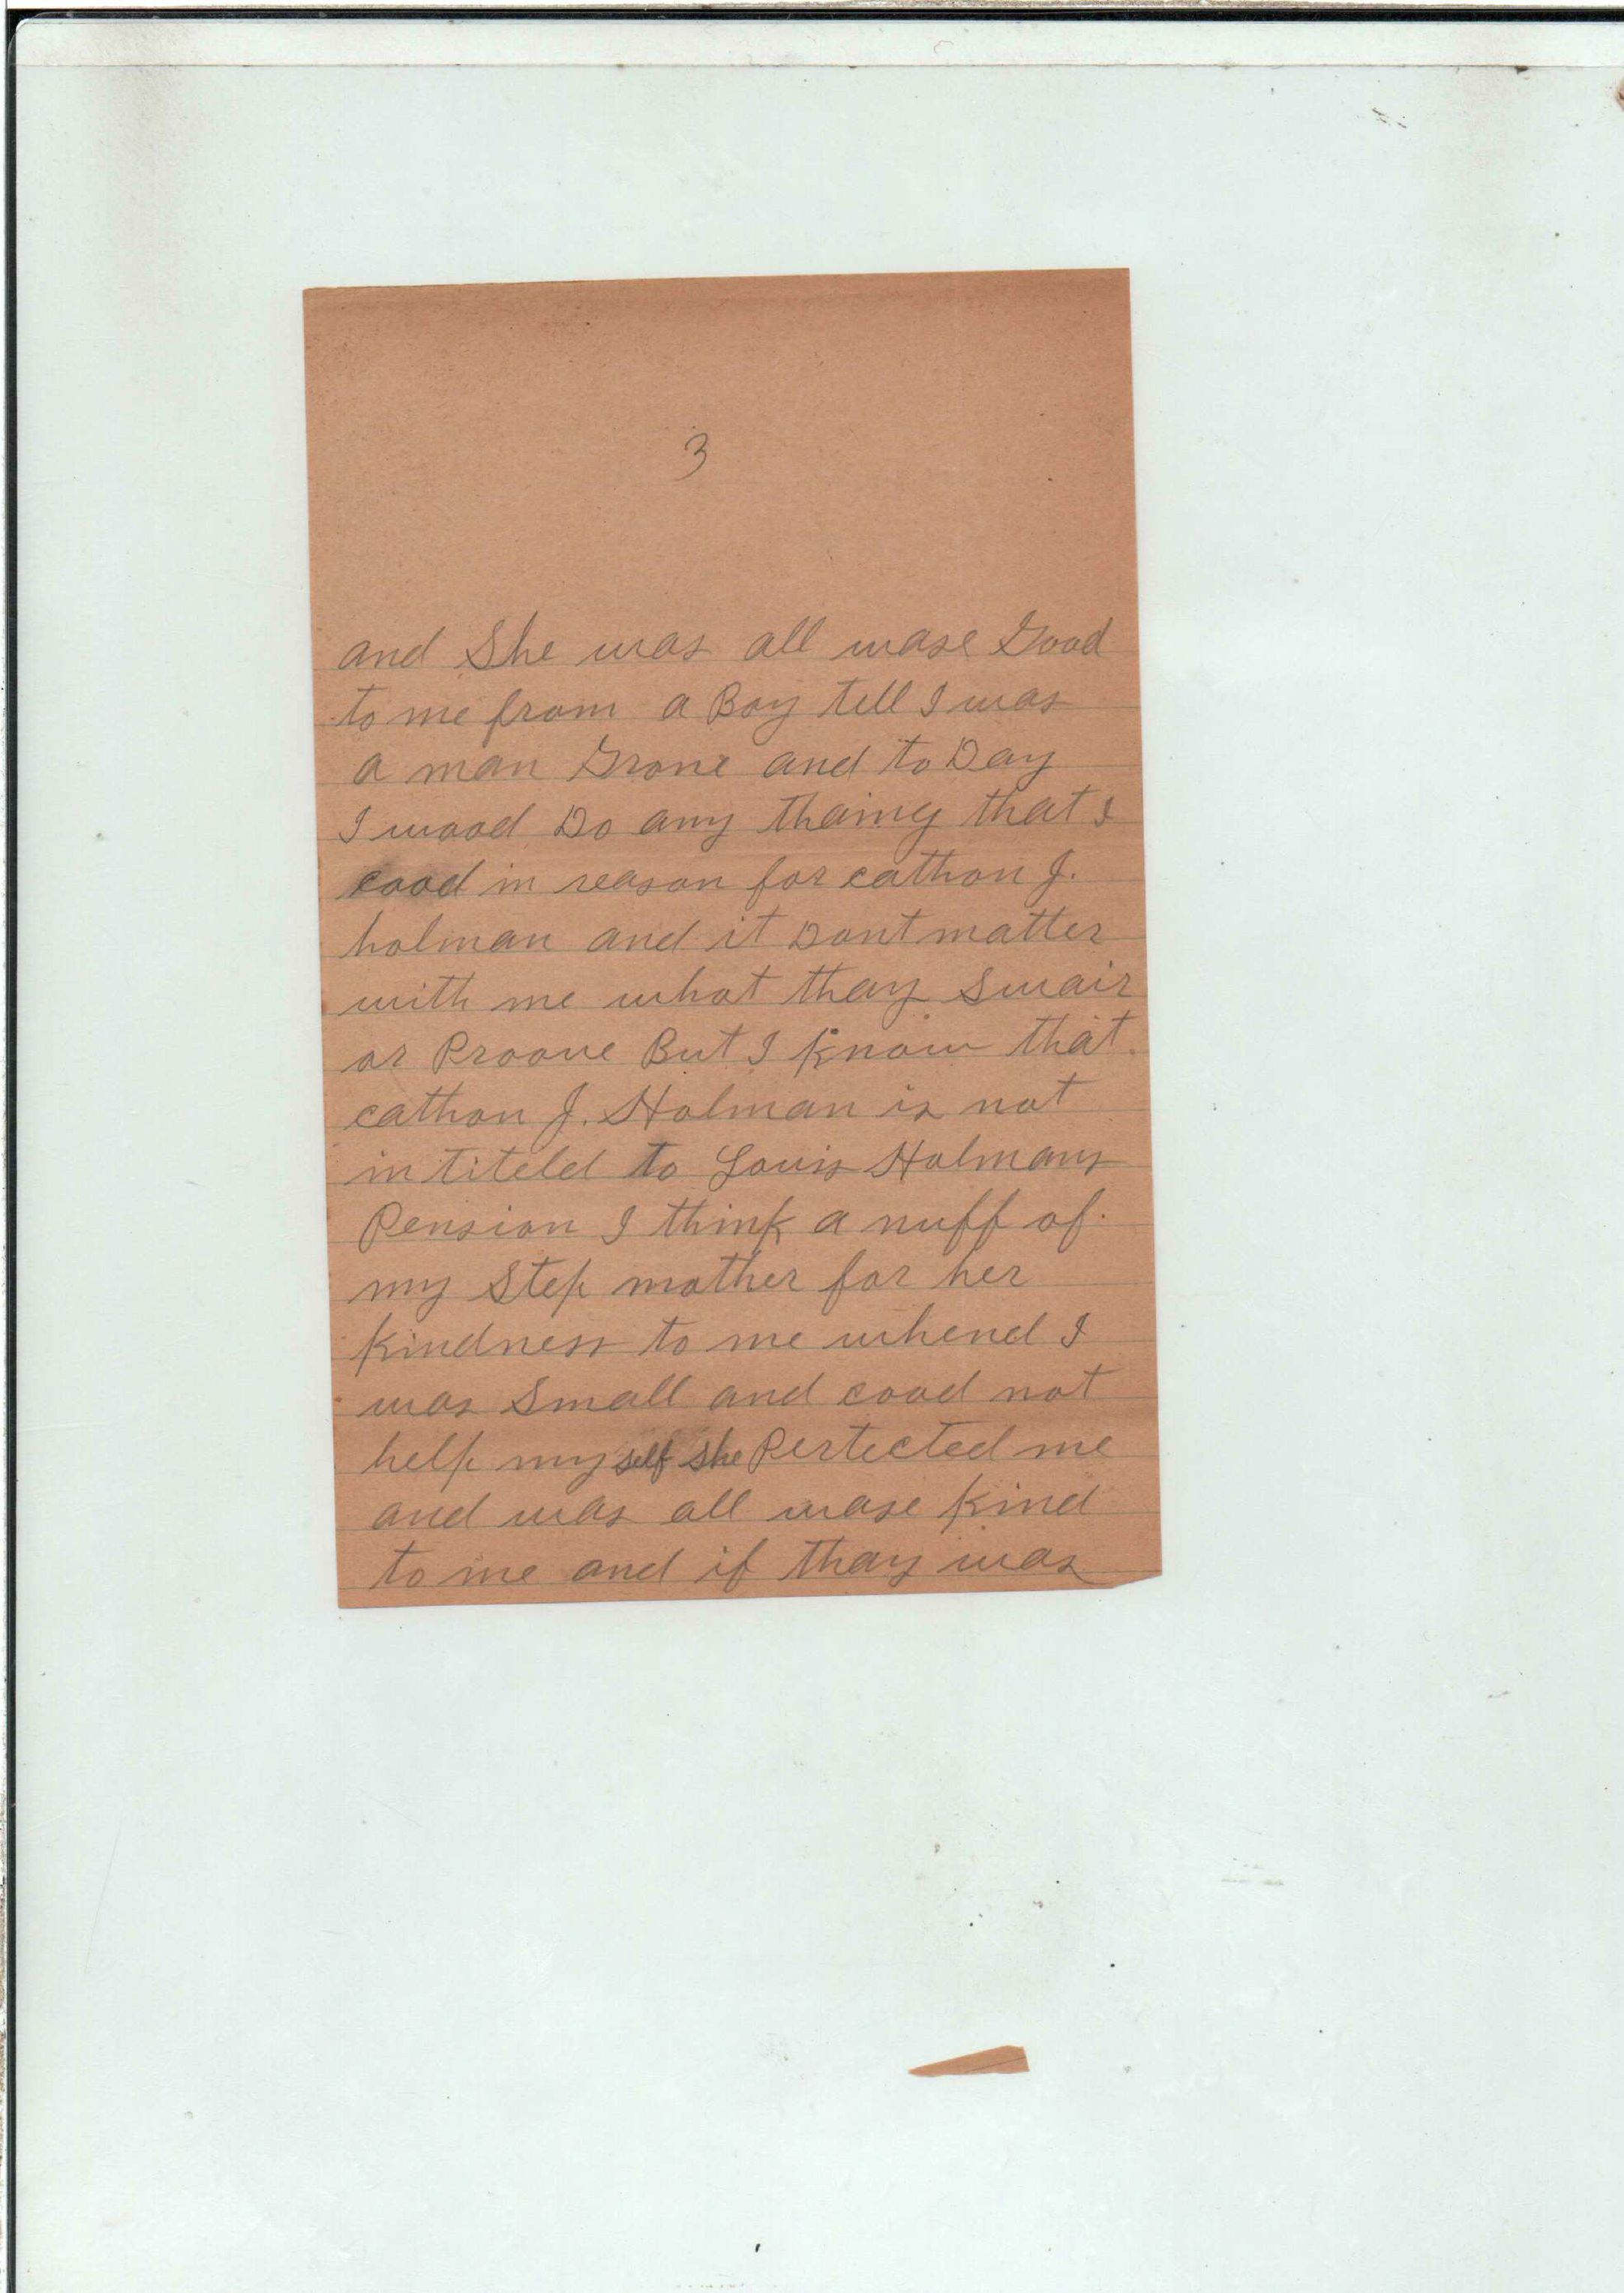 3
and She was all wase Good
to me from a Boy tell I was
a man Grone and to Day
I wood Do any thaing that I
cood in reason for cathon J.
holman and it Dont matter
with me what thay Swair
or Proove But I know that.
cathon J. Holman is not
in titeld to Louis Holmans
Pension I think a nuff of.
my Step mother for her
kindness to me whend I
was Small and cood not
help my self she Pertected me
and was all wase kind
to me and if thay was